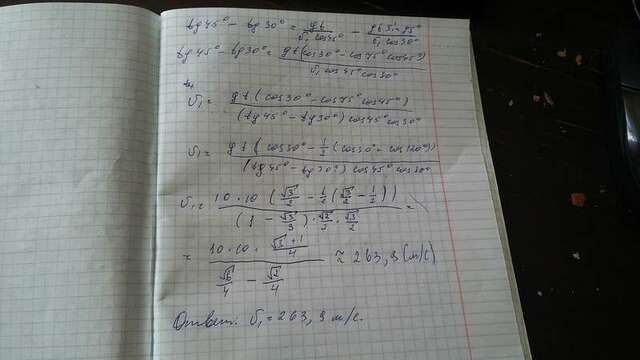 tg 45° - tg 30° = gt / (υ₁ cos 45°) - gt sin 75° / (υ₁ cos 30°)
tg 45° - tg 30° = gt (cos 30° - cos 75° cos 45°) / (υ₁ cos 45° cos 30°)
υ₁ = gt (cos 30° - cos 75° cos 45°) / ((tg 45° - tg 30°) cos 45° cos 30°)
υ₁ = gt (cos 30° - 1/2 (cos 30° + cos 120°)) / ((tg 45° - tg 30°) cos 45° cos 30°)
υ₁ = 10 · 10 (√3/2 - 1/2 (√3/2 - 1/2)) / ((1 - √3/3) · √2/2 · √3/2) =
= 10 · 10 · (√3 + 1)/4 / (√6/4 - √2/4) ≈ 263,9 (м/с)
Ответ. υ₁ = 263,9 м/с.